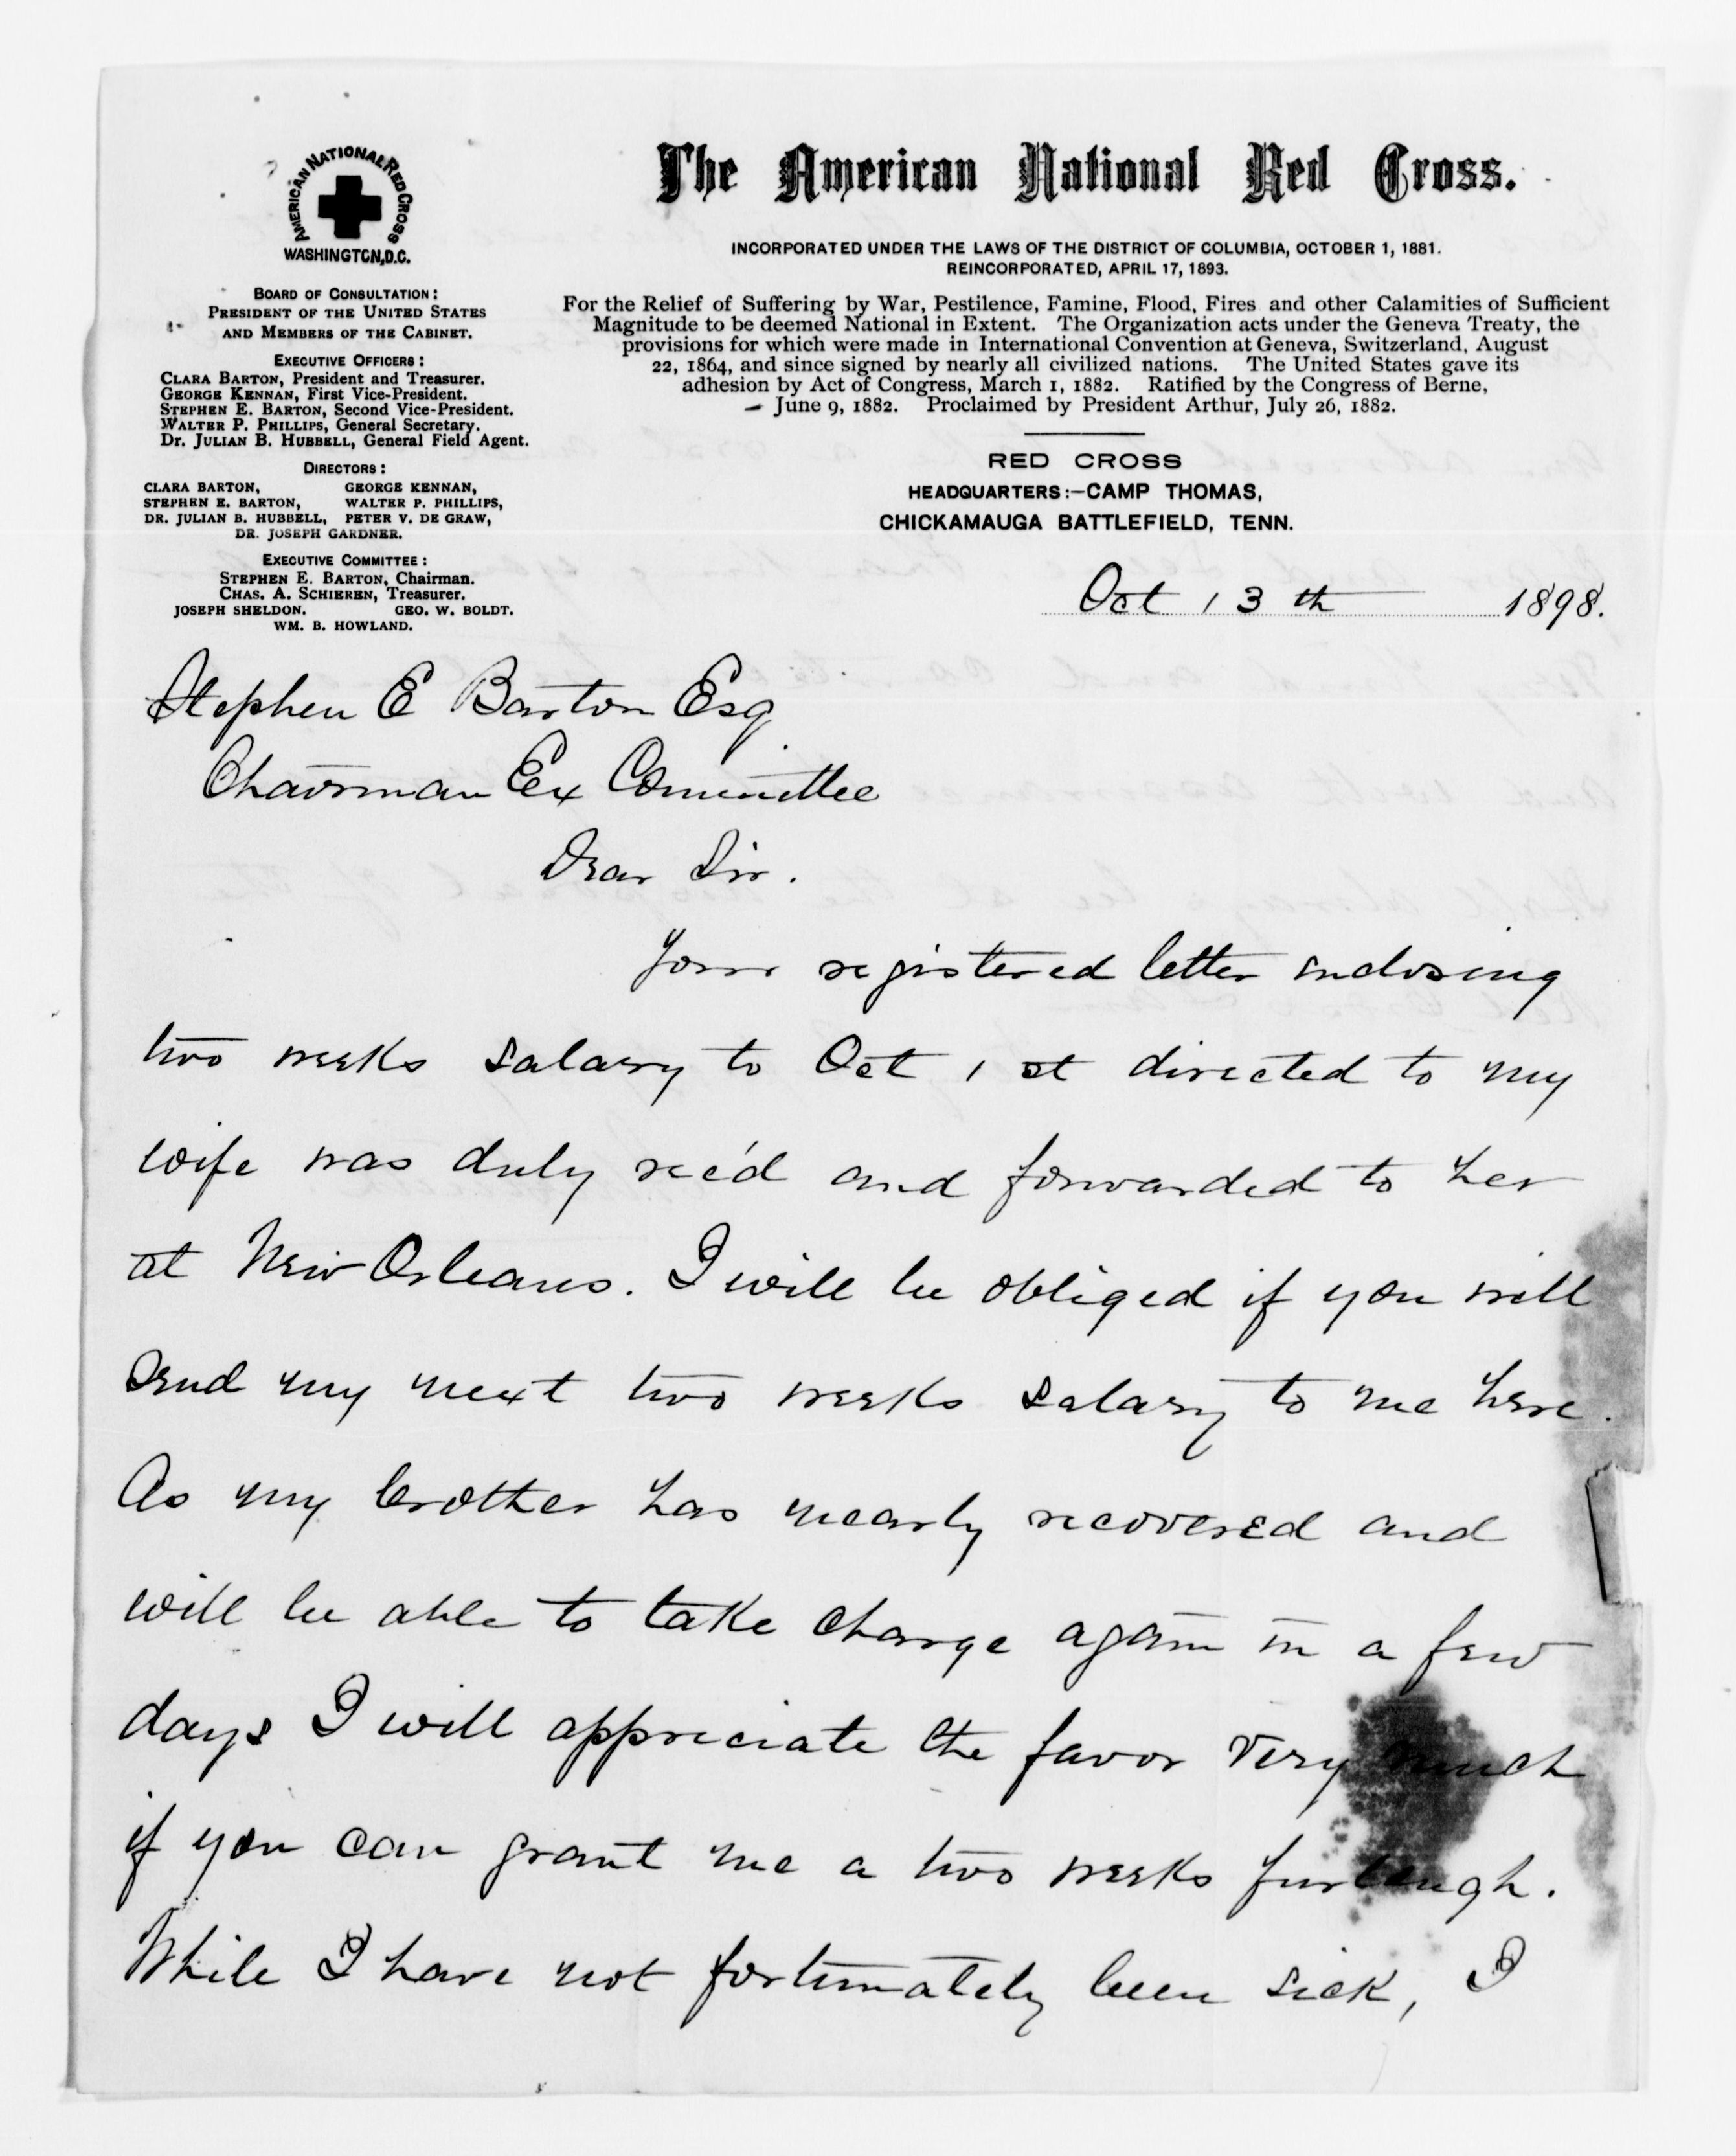 AMERICAN NATIONAL RED CROSS
WASHINGTON, D.C.
BOARD OF CONSULTATION:
PRESIDENT OF THE UNITED STATES
AND MEMBERS OF THE CABINET.
EXECUTIVE OFFICERS:
CLARA BARTON, President and Treasurer.
GEORGE KENNAN, First Vice-President.
STEPHEN E. BARTON, Second Vice-President.
WALTER P. PHILLIPS, General Secretary.
Dr. JULIAN B. HUBBELL, General Field Agent.
DIRECTORS:
CLARA BARTON, GEORGE KENNAN,
STEPHEN E. BARTON, WALTER P. PHILLIPS,
DR. JULIAN B. HUBBELL, PETER V. DE GRAW,
DR. JOSEPH GARDNER.
EXECUTIVE COMMITTEE:
STEPHEN E. BARTON, Chairman.
CHAS. A. SCHIEREN, Treasurer.
JOSEPH SHELDON. GEO. W. BOLDT.
WM. B. HOWLAND.
The American National Red Cross.
INCORPORATED UNDER THE LAWS OF THE DISTRICT OF COLUMBIA, OCTOBER 1, 1881.
REINCORPORATED, APRIL 17, 1893.
For the Relief of Suffering by War, Pestilence, Famine, Flood, Fires and other Calamities of Sufficient
Magnitude to be deemed National in Extent. The Organization acts under the Geneva Treaty, the
provisions for which were made in International Convention at Geneva, Switzerland, August
22, 1864, and since signed by nearly all civilized nations. The United States gave its
adhesion by Act of Congress, March 1, 1882. Ratified by the Congress of Berne,
June 9, 1882. Proclaimed by President Arthur, July 26, 1882.
RED CROSS
HEADQUARTERS:—CAMP THOMAS,
CHICKAMAUGA BATTLEFIELD, TENN.
Oct 13th 1898.
Stephen E Barton Esq.
Chairman Ex Committee
Dear Sir.
Your registered letter inclosing
two weeks salary to Oct 1st directed to my
wife was duly rec'd and forwarded to her
at New Orleans. I will be obliged if you will
send my next two weeks salary to me here.
As my brother has nearly recovered and
will be able to take charge again in a few
days I will appreciate the favor very much
if you can grant me a two weeks furlough.
While I have not fortunately been sick, I